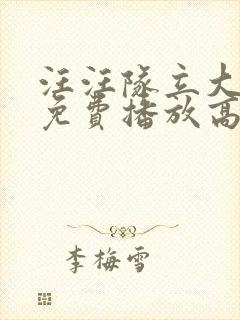 汪汪隊立大
免費播放高
李梅雪